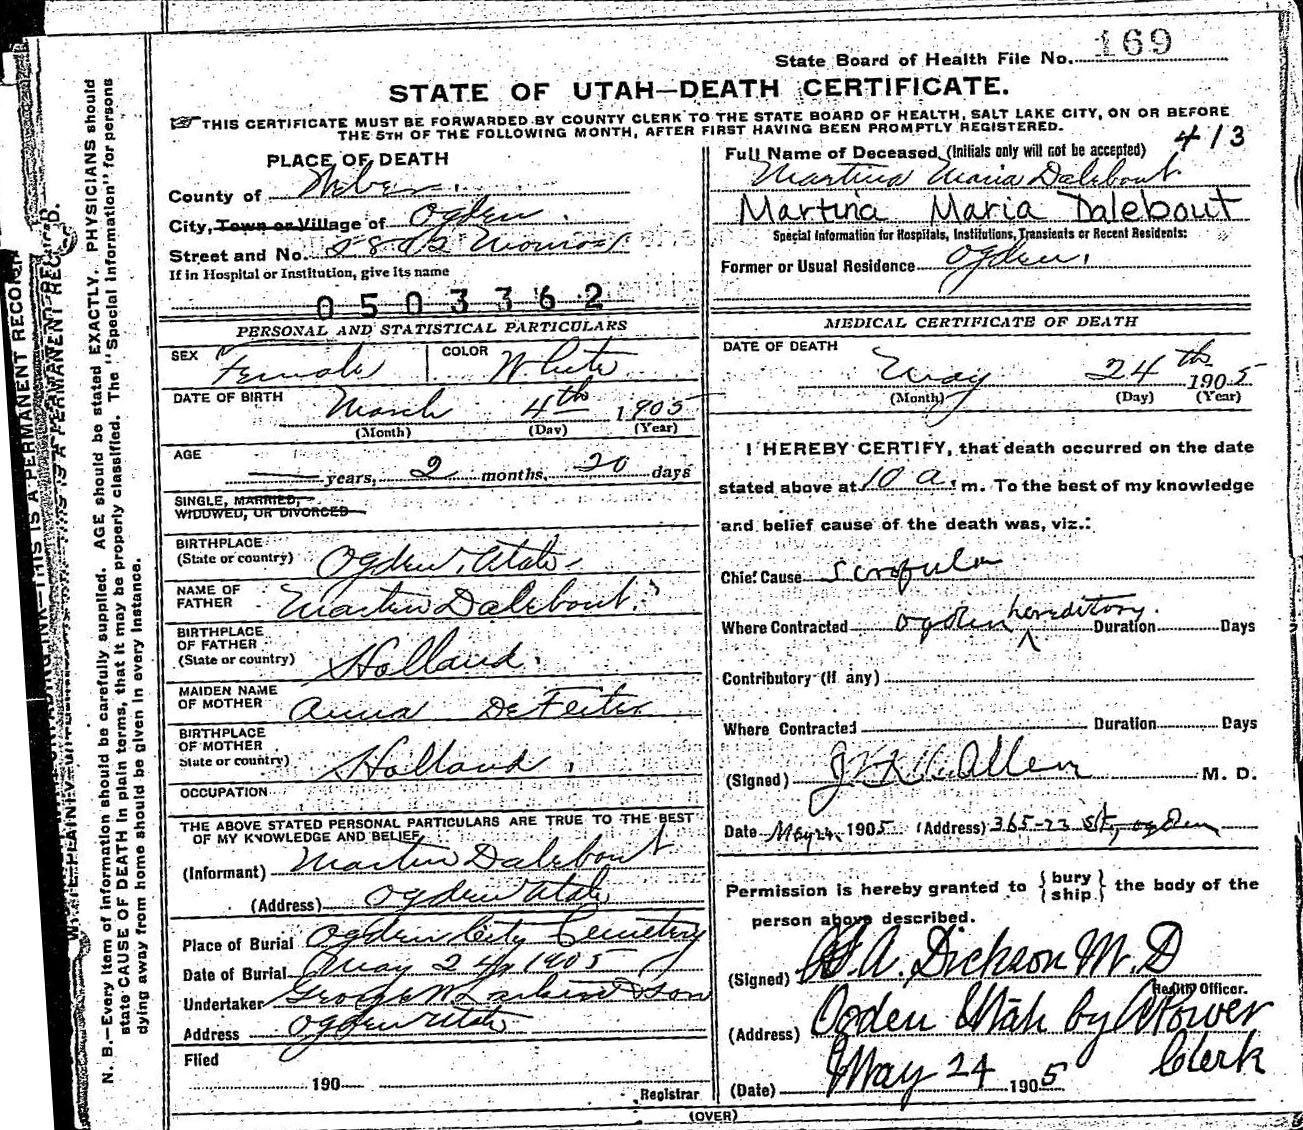 State Board of Health File No. 169
STATE OF UTAH—DEATH CERTIFICATE.
THIS CERTIFICATE MUST BE FORWARDED BY COUNTY CLERK TO THE STATE BOARD OF HEALTH, SALT LAKE CITY, ON OR BEFORE
THE 5TH OF THE FOLLOWING MONTH, AFTER FIRST HAVING BEEN PROMPTLY REGISTERED.
413
PLACE OF DEATH
County of Weber.
City, Town or Village of Ogden.
Street and No. Monroe
If in Hospital or Institution, give its name
0503362
PERSONAL AND STATISTICAL PARTICULARS
SEX Female COLOR White
DATE OF BIRTH March 4th 1905
(Month) (Day) (Year)
AGE
years, 2 months, 20 days
SINGLE, MARRIED,
WIDOWED, OR DIVORCED
BIRTHPLACE
(State or country) Ogden, Utah.
NAME OF
FATHER Martin Dalebout.
BIRTHPLACE
OF FATHER
(State or country) Holland.
MAIDEN NAME
OF MOTHER Anna DeFeiter
BIRTHPLACE
OF MOTHER
State or country) Holland.
OCCUPATION
THE ABOVE STATED PERSONAL PARTICULARS ARE TRUE TO THE BEST
OF MY KNOWLEDGE AND BELIEF
(Informant) Martin Dalebout
(Address) Ogden Utah
Place of Burial Ogden City Cemetery
Date of Burial May 24, 1905
Undertaker George W Larkin & Son
Address Ogden Utah
Filed
190
Registrar
Full Name of Deceased (Initials only will not be accepted)
Martina Maria Dalebout
Martina Maria Dalebout
Special Information for Hospitals, Institutions, Transients or Recent Residents:
Former or Usual Residence Ogden.
MEDICAL CERTIFICATE OF DEATH
DATE OF DEATH
May 24th 1905
(Month) (Day) (Year)
I HEREBY CERTIFY, that death occurred on the date
stated above at 10 a. m. To the best of my knowledge
and belief cause of the death was, viz.:
Chief Cause Scrofula
Where Contracted Ogden hereditory. Duration Days
Contributory (If any)
Where Contracted Duration Days
(Signed) Allen M. D.
Date May 24, 1905 (Address) 365-22 St, Ogden
Permission is hereby granted to {bury ship} the body of the
person above described.
(Signed) A. Dickson M.D
Health Officer.
(Address) Ogden Utah by Power
Clerk
(Date) May 24 1905
(OVER)
N. B.—Every item of information should be carefully supplied. AGE should be stated EXACTLY. PHYSICIANS should
state CAUSE OF DEATH in plain terms, that it may be properly classified. The "Special Information" for persons
dying away from home should be given in every instance.
THIS IS A PERMANENT RECORD.